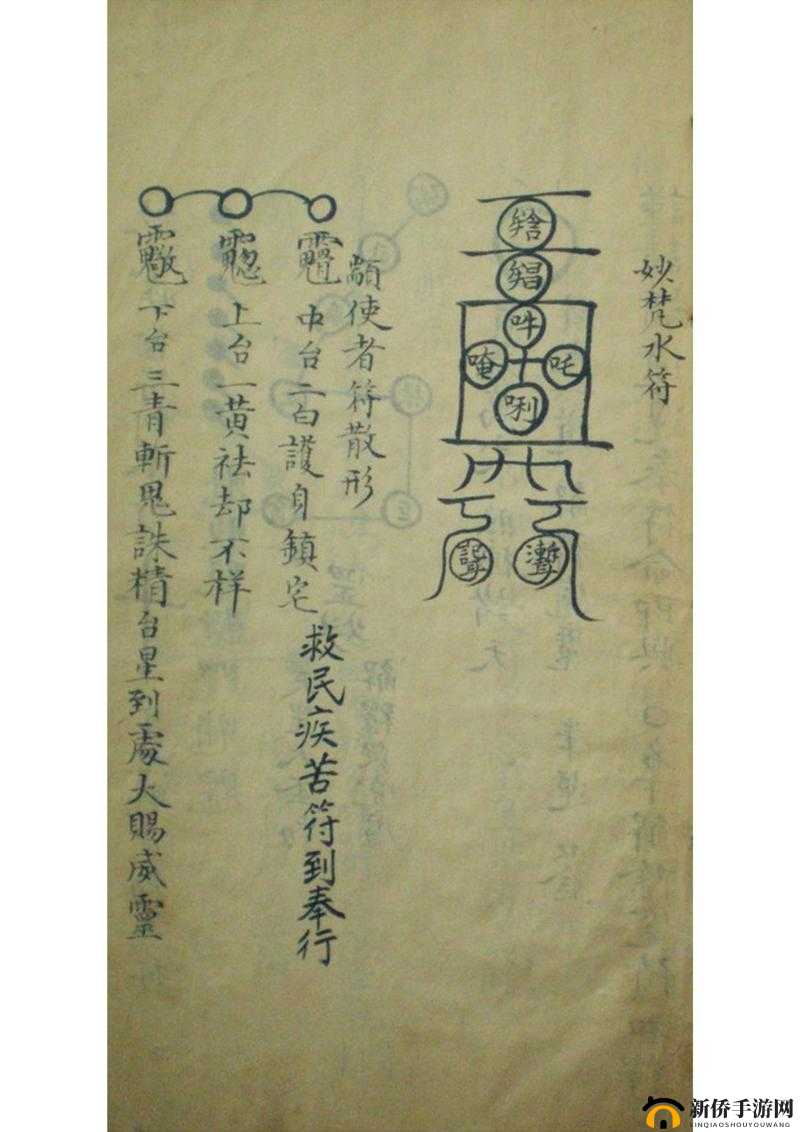 妙梵水符
吽
唵 吒
唎
顯使者符散形
中台二白護自鎮宅
救民疾苦符到奉行
上台一黄祛却不样
下台三青斬鬼誅精台星到處大賜威靈
新侨手游网
XINQIAOSHOUYOUWANG